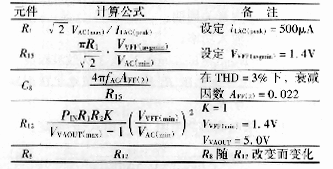 元件 计算公式 备 注
R₁ √2 V_AC(max)/I_LAC(peak) 设定 i_LAC(peak)=500μA
R₁₅ πR₁/√2 · V_VFF(avgmin)/V_AC(min) 设定 V_VFF(avgmin)=1.4V
C₈ 4πf_AC A_FF(2)/R₁₅ 在 THD=3%下,衰减
因数 A_FF(2)=0.022
R₁₂ P_IN R₁R₂K/(V_VAOUT(max)−1) (V_VFF(min)/V_AC(min))² K=1
V_VFF(min)=1.4V
V_VAOUT=5.0V
R₈ R₁₂ R₈ 随 R₁₂ 改变而变化